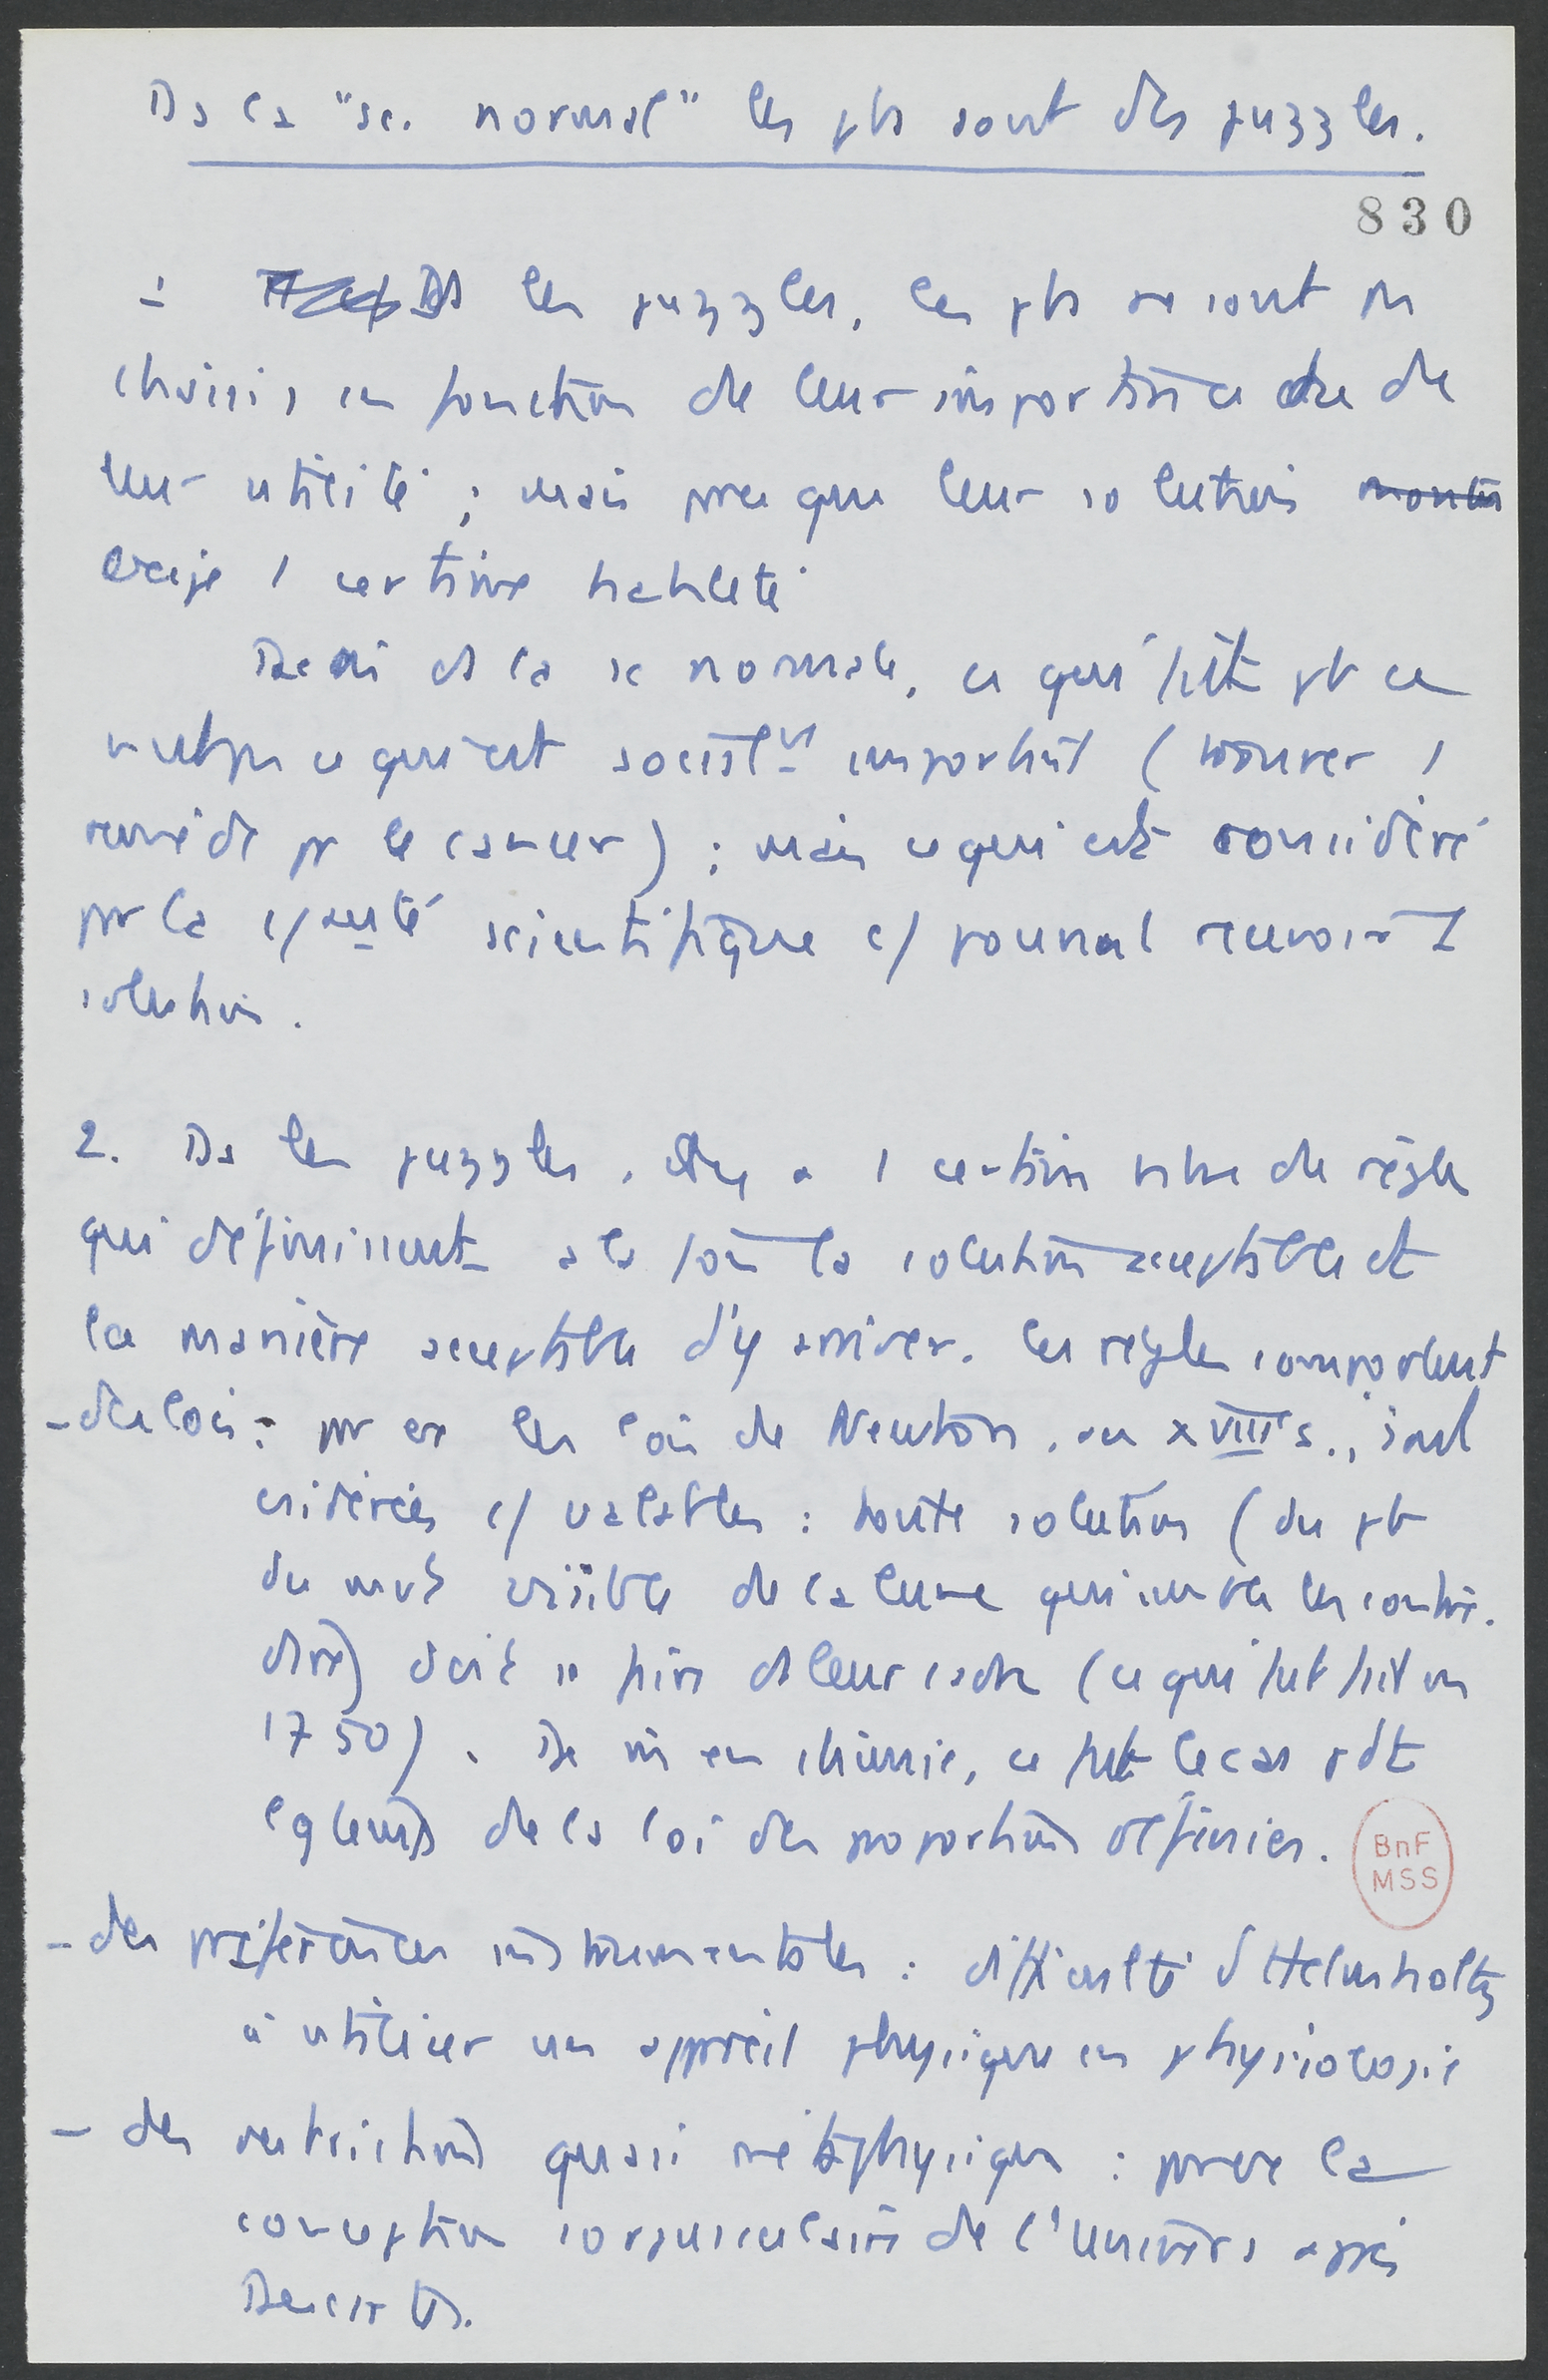 Ds la "sc. normal" les pbs sont des puzzles.
830
1 Ds les puzzles, les pbs ne sont pas
choisis en fonction de leur importance ou de
leur utilité ; mais pce que leur solution
exige 1 certaine habileté
De mi ds la sc normale, ce qui fait pb ce
n'est pas ce qui est socialt important (trouver 1
remède pr le cancer) ; mais ce qui est considéré
par la c/auté scientifique c/ pouvant recevoir 1
solution.
2. Ds les puzzles, il y a 1 certain nbre de règles
qui définissent à la fois la solution acceptable et
la manière acceptable d'y arriver. les règles comportent
- des lois : par ex les lois de Newton, au XVIII s., sont
csidérées c/ valables : toute solution (du pb
du mvt visible de la lune qui semble les contre-
dire) doit se faire ds leur cadre (ce qui fut fait en
1750). De mi en chimie, ce fut le cas pdt
lgtemps de la loi des proportions définies.
BnF
MSS
- des préférences instrumentales : difficulté d'Helmholtz
à utiliser un appareil physique en physiologie
- des restrictions quasi métaphysiques : par ex la
conception corpusculaire de l'Univers après
Descartes.